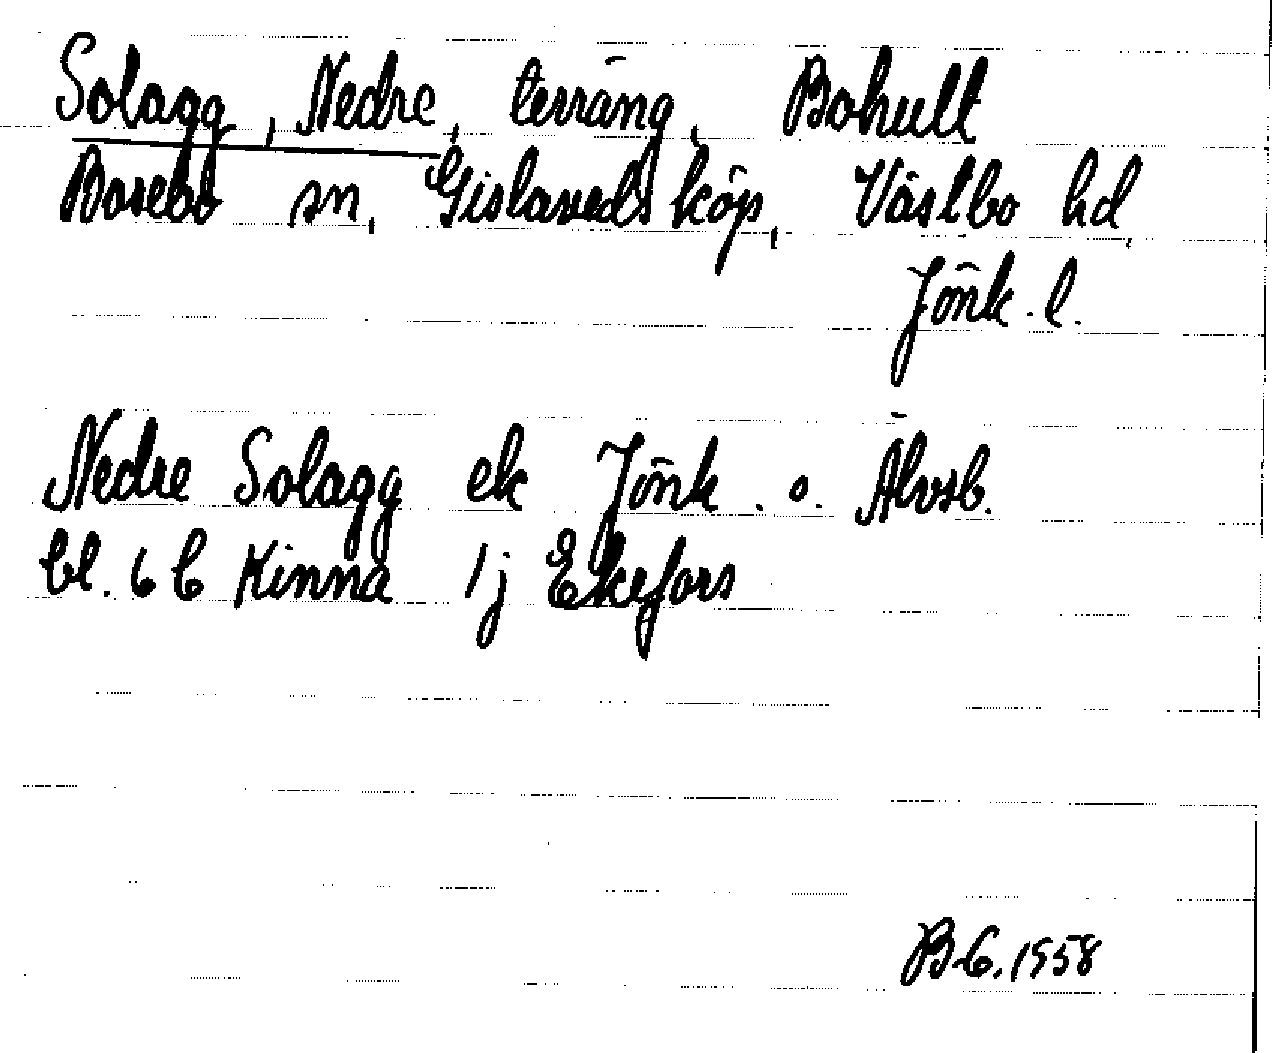 Solagg, Nedre, terräng, Bohult
Bosebo sn, Gislaveds köp, Västbo hd,
Jönk. l.
Nedre Solagg ek Jönk. o. Älvsb.
bl. 6 C Kinna 1j Ekefors
B-G. 1958